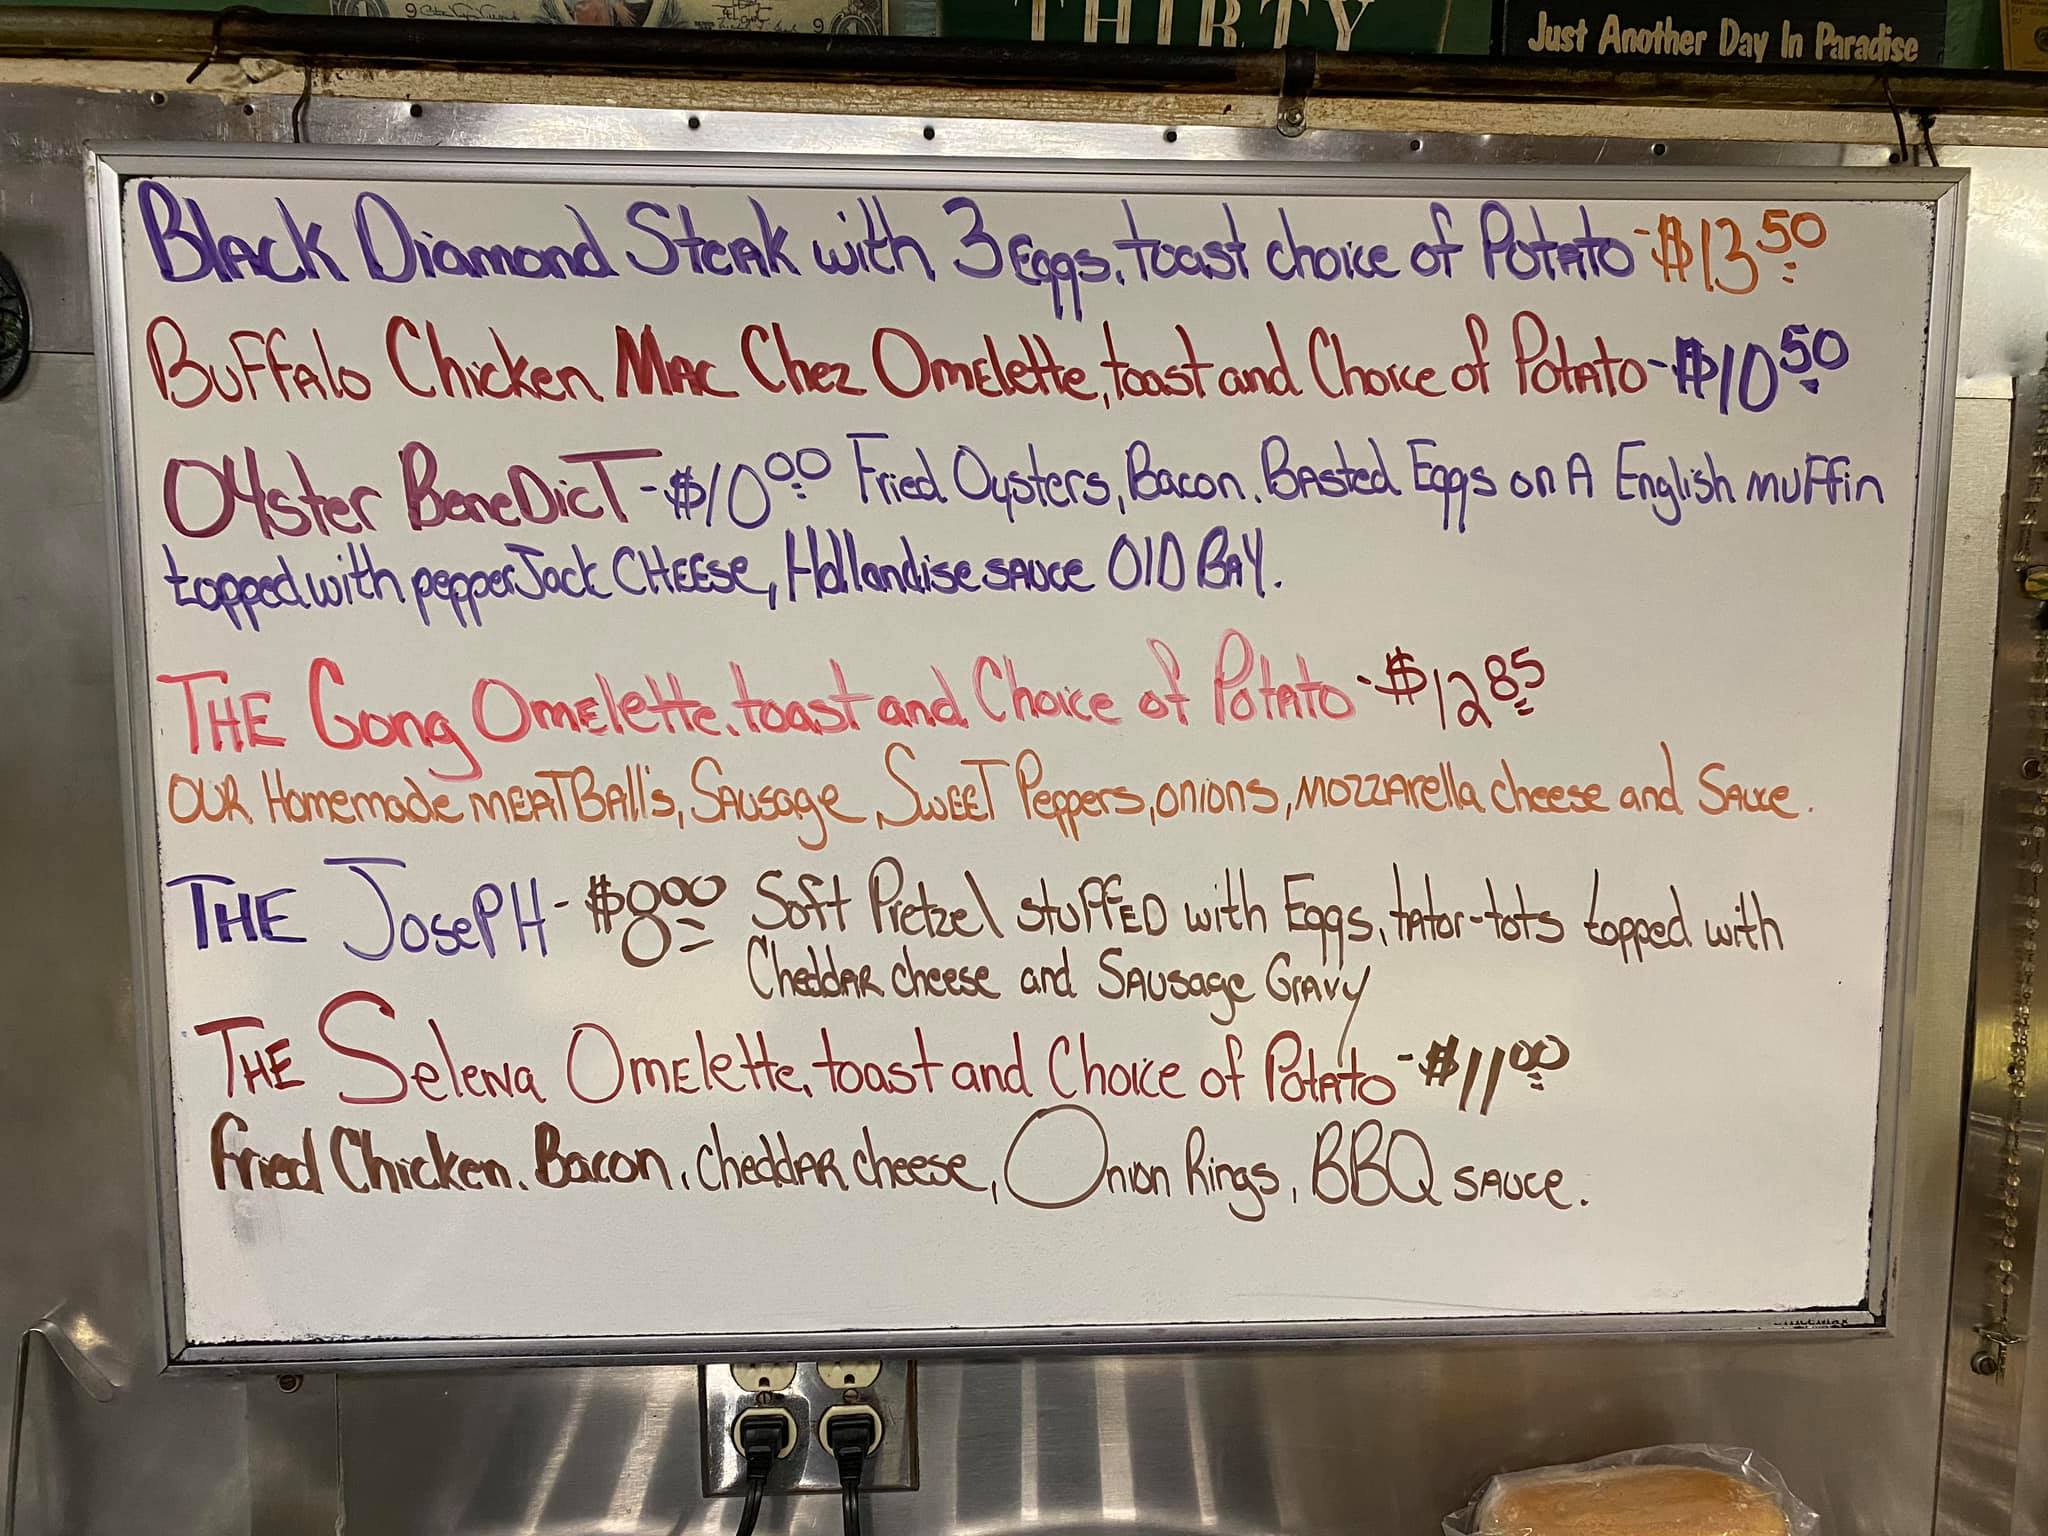 THIRTY
Just Another Day In Paradise
Black Diamond Steak with 3 Eggs, toast choice of Potato - $13.50
Buffalo Chicken Mac Chez Omelette, toast and Choice of Potato - $10.50
Oyster Benedict - $10.00 Fried Oysters, Bacon, Basted Eggs on A English muffin
topped with pepper Jack CHEESE, Hollandise sauce Old Bay.
THE Gong Omelette, toast and Choice of Potato - $12.85
OUR Homemade MEATBall's, Sausage, SWEET Peppers, onions, mozzarella cheese and Sauce.
THE JosePH - $8.00 Soft Pretzel stuffed with Eggs, tator-tots topped with
Cheddar cheese and Sausage Gravy
THE Selena Omelette, toast and Choice of Potato - $11.00
Fried Chicken, Bacon, cheddar cheese, Onion Rings, BBQ sauce.